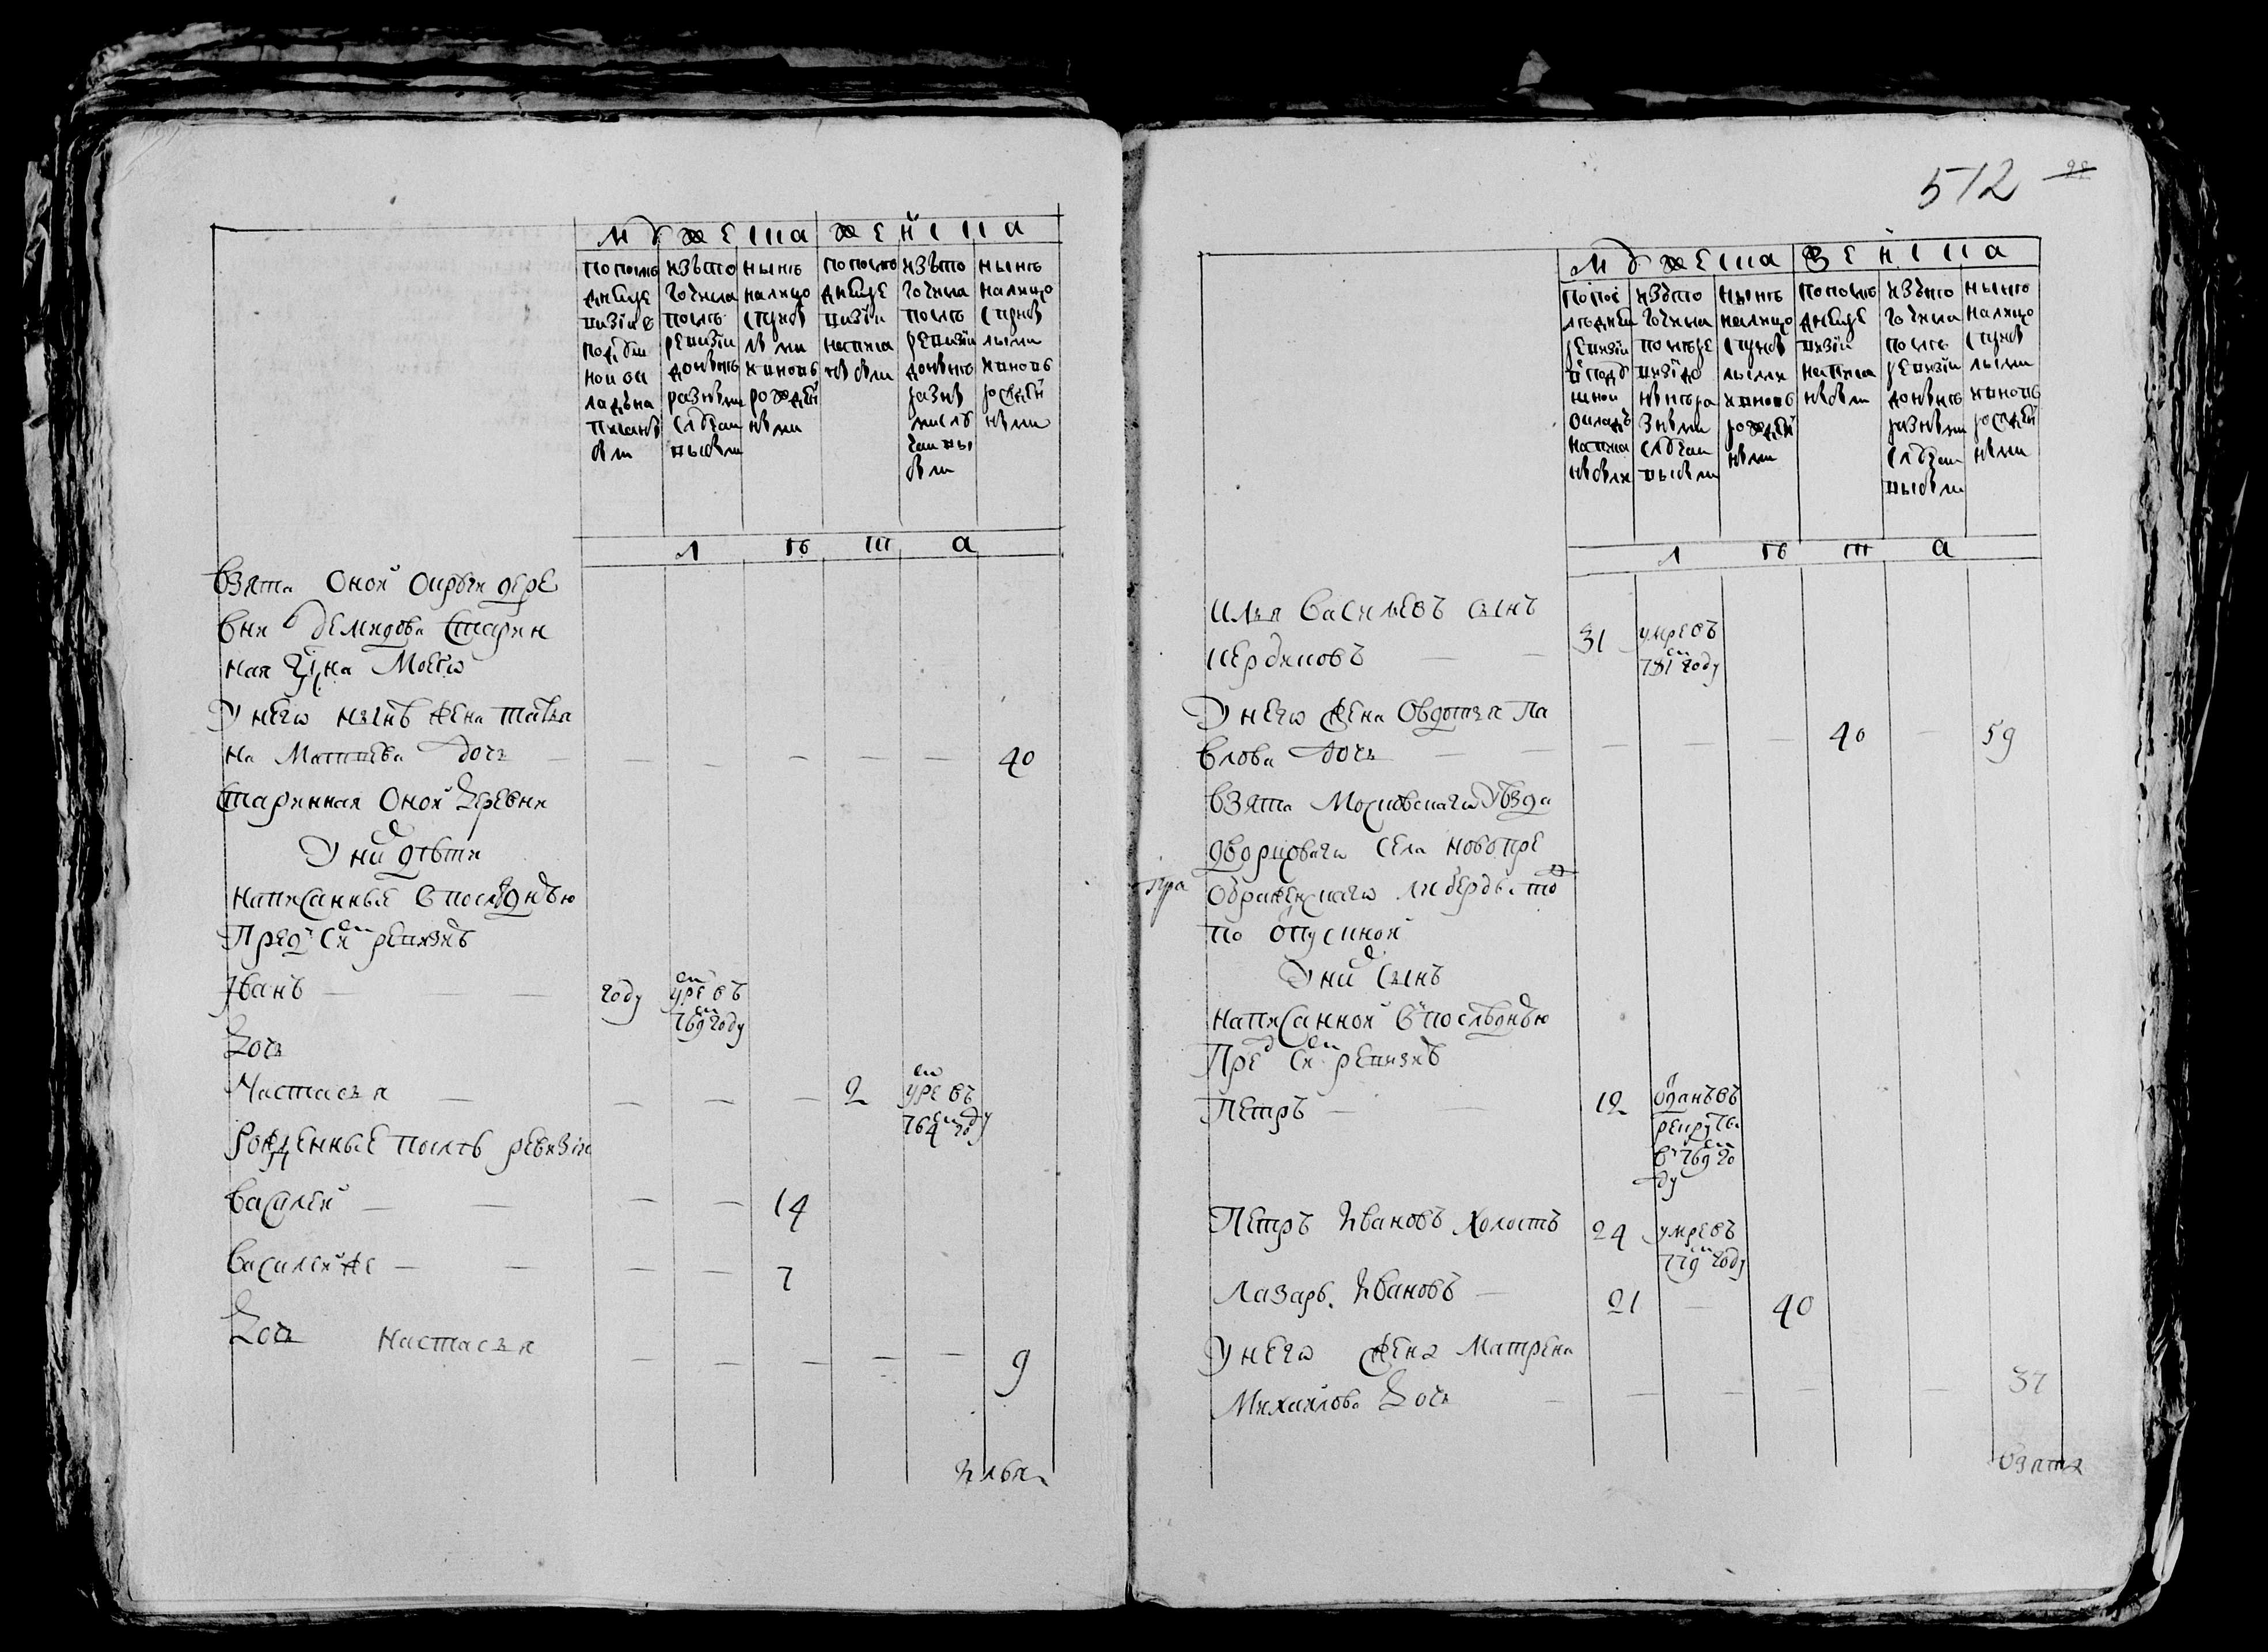 мужеска женска
по послѣ
дней ре
визіи в
подуш
ной ок
ладъ на
писанн
ыми
изъ то
го числа
послѣ
ревизіи
до нынѣ
разными
случаи
выбыли
нынѣ
на лицо
с прибы
лыми
и вновь
рожден
ными
по послѣ
дней ре
визіи
написа
нными
изъ то
го числа
послѣ
ревизіи
до нынѣ
разны
ми слу
чаи вы
были
нынѣ
на лицо
с прибы
лыми
и вновь
рожден
ными
л ѣ т а
взята оной округи дере
вни Демидова старин
ная
У него нынѣ жена Татья
на Матвѣева дочь — — — — — — 40
старинная оной деревни
У них дѣти
написанные в последнюю
пред сим ревизию
Іванъ — году умре въ
769м году
дочь
Настасья — — — — 2 умре въ
764м году
Рожденные послѣ ревизии
Василей — — — — 14
Василей же — — — — 7
дочь Настасья — — — — — 9
Илья
512
22
мужеска женска
по пос
лѣдней
ревизіи
в поду
шной
окладъ
написа
нными
изъ то
го числа
послѣ ре
визіи до
нынѣ ра
зными
случаи
выбыли
нынѣ
на лицо
с прибы
лыми
и вновь
рожден
ными
по послѣ
дней ре
визіи
написа
нными
изъ то
го числа
послѣ
ревизіи
до нынѣ
разными
случаи
выбыли
нынѣ
на лицо
с прибы
лыми
и вновь
рожден
ными
л ѣ т а
Илья Васильевъ сынъ
— — 31 умре въ
781м году
У него жена Овдотья Па
влова дочь — — — — — 40 — 59
взята Московскаго уѣзда
дворцоваго села Новопре
ображенскаго Либерцы тож
по отпускной
У них сынъ
написанной в последнюю
пред сим ревизию
Петръ — — 12 отданъ въ
рекруты
в 769м го
ду
Петръ Ивановъ холостъ 24 умре въ
779м году
Лазарь Ивановъ — 21 — 40
У него жена Матрена
Михайлова дочь — — — — — 37
взята